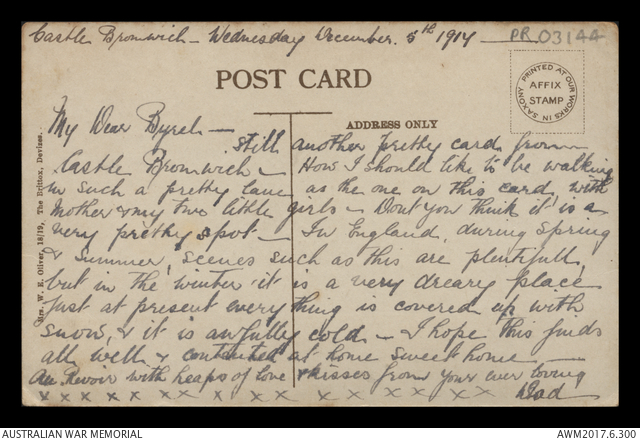 Castle Bromwich - Wednesday December. 5th 1917 PR 03144
POST CARD
PRINTED AT OUR WORKS IN SAXONY
AFFIX
STAMP
ADDRESS ONLY
Mrs. W. E. Oliver, 18/19, The Brittox, Devizes.
My Dear Byrel -
still another pretty card from
Castle Bromwich - How I should like to be walking
in such a pretty lane as the one on this card, with
Mother & my two little girls - Dont you think it is a
very pretty spot - In England, during Spring
& Summer, scenes such as this are plentiful,
but in the winter it is a very dreary place
Just at present every thing is covered up with
snow, & it is awfully cold - I hope this finds
all well & contented at home sweet home -
Au Revoir with heaps of love & kisses from your ever loving
x x x x x x x x x x x x x x x Dad
AUSTRALIAN WAR MEMORIAL AWM2017.6.300